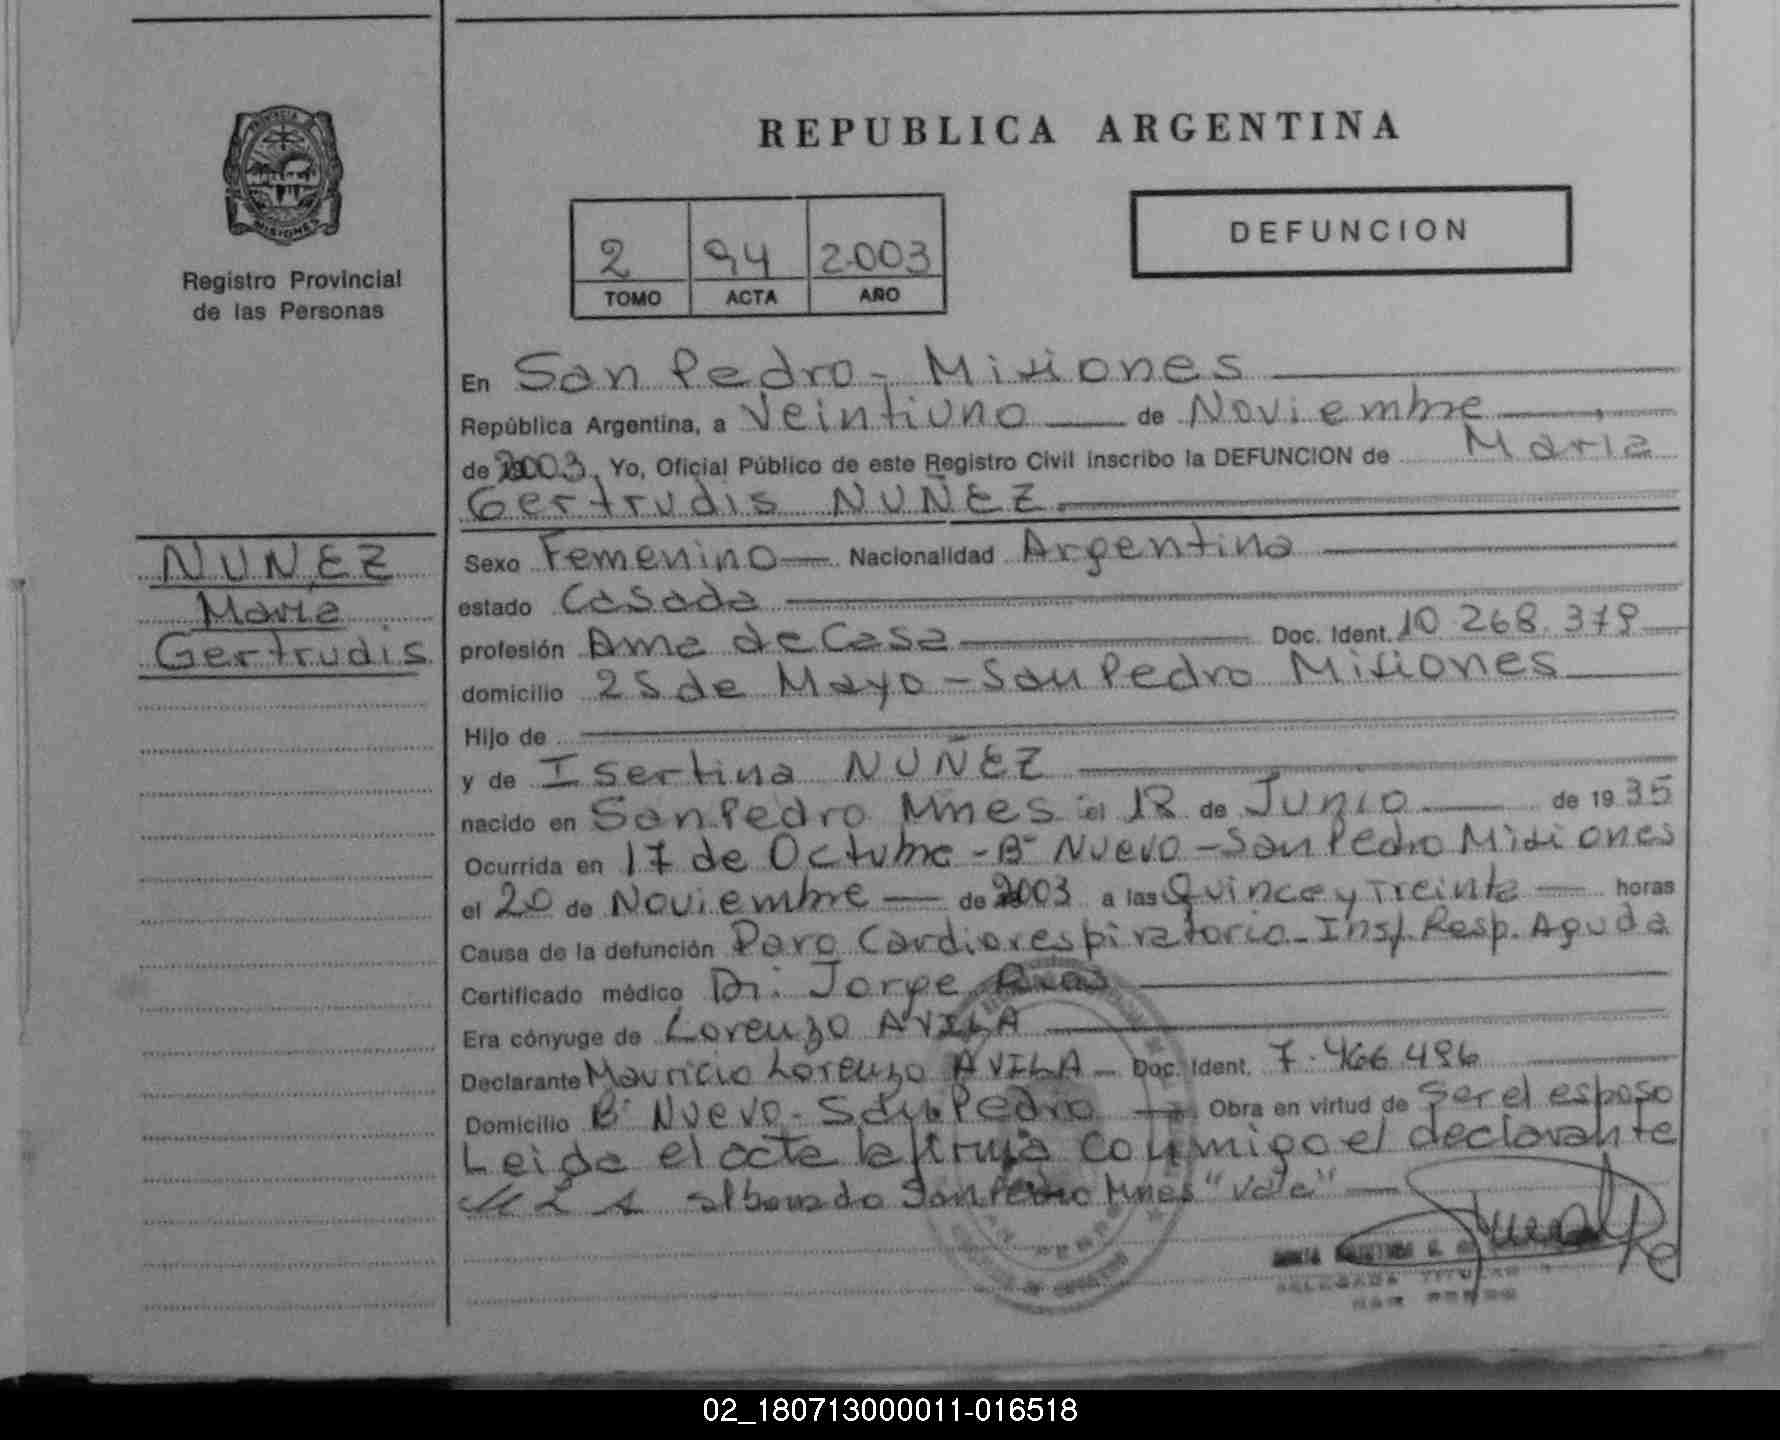 PROVINCIA DE
MISIONES
Registro Provincial
de las Personas
REPUBLICA ARGENTINA
2 94 2003
TOMO ACTA AÑO
DEFUNCION
En San Pedro - Misiones
República Argentina, a Veintiuno de Noviembre
de 2003, Yo, Oficial Público de este Registro Civil inscribo la DEFUNCION de Maria
Gertrudis NUÑEZ
NUÑEZ
Maria
Gertrudis
Sexo Femenino Nacionalidad Argentina
estado Casada
profesión Ama de Casa Doc. Ident. 10.268.379
domicilio 25 de Mayo - San Pedro Misiones
Hijo de
y de Isertina NUÑEZ
nacido en San Pedro Mnes el 18 de Junio de 1935
Ocurrida en 17 de Octubre - Bº Nuevo - San Pedro Misiones
el 20 de Noviembre de 2003 a las Quince y Treinta horas
Causa de la defunción Paro Cardiorespiratorio - Insf. Resp. Aguda
Certificado médico Dr. Jorge
Era cónyuge de Lorenzo AVILA
Declarante Mauricio Lorenzo AVILA - Doc. Ident. 7.466.496
Domicilio Bº Nuevo - San Pedro Obra en virtud de Ser el esposo
Leida el acta la firma conmigo el declarante
M L A San Pedro Mnes "Vale"
DELEGADA TITULAR
SAN PEDRO
02_180713000011-016518